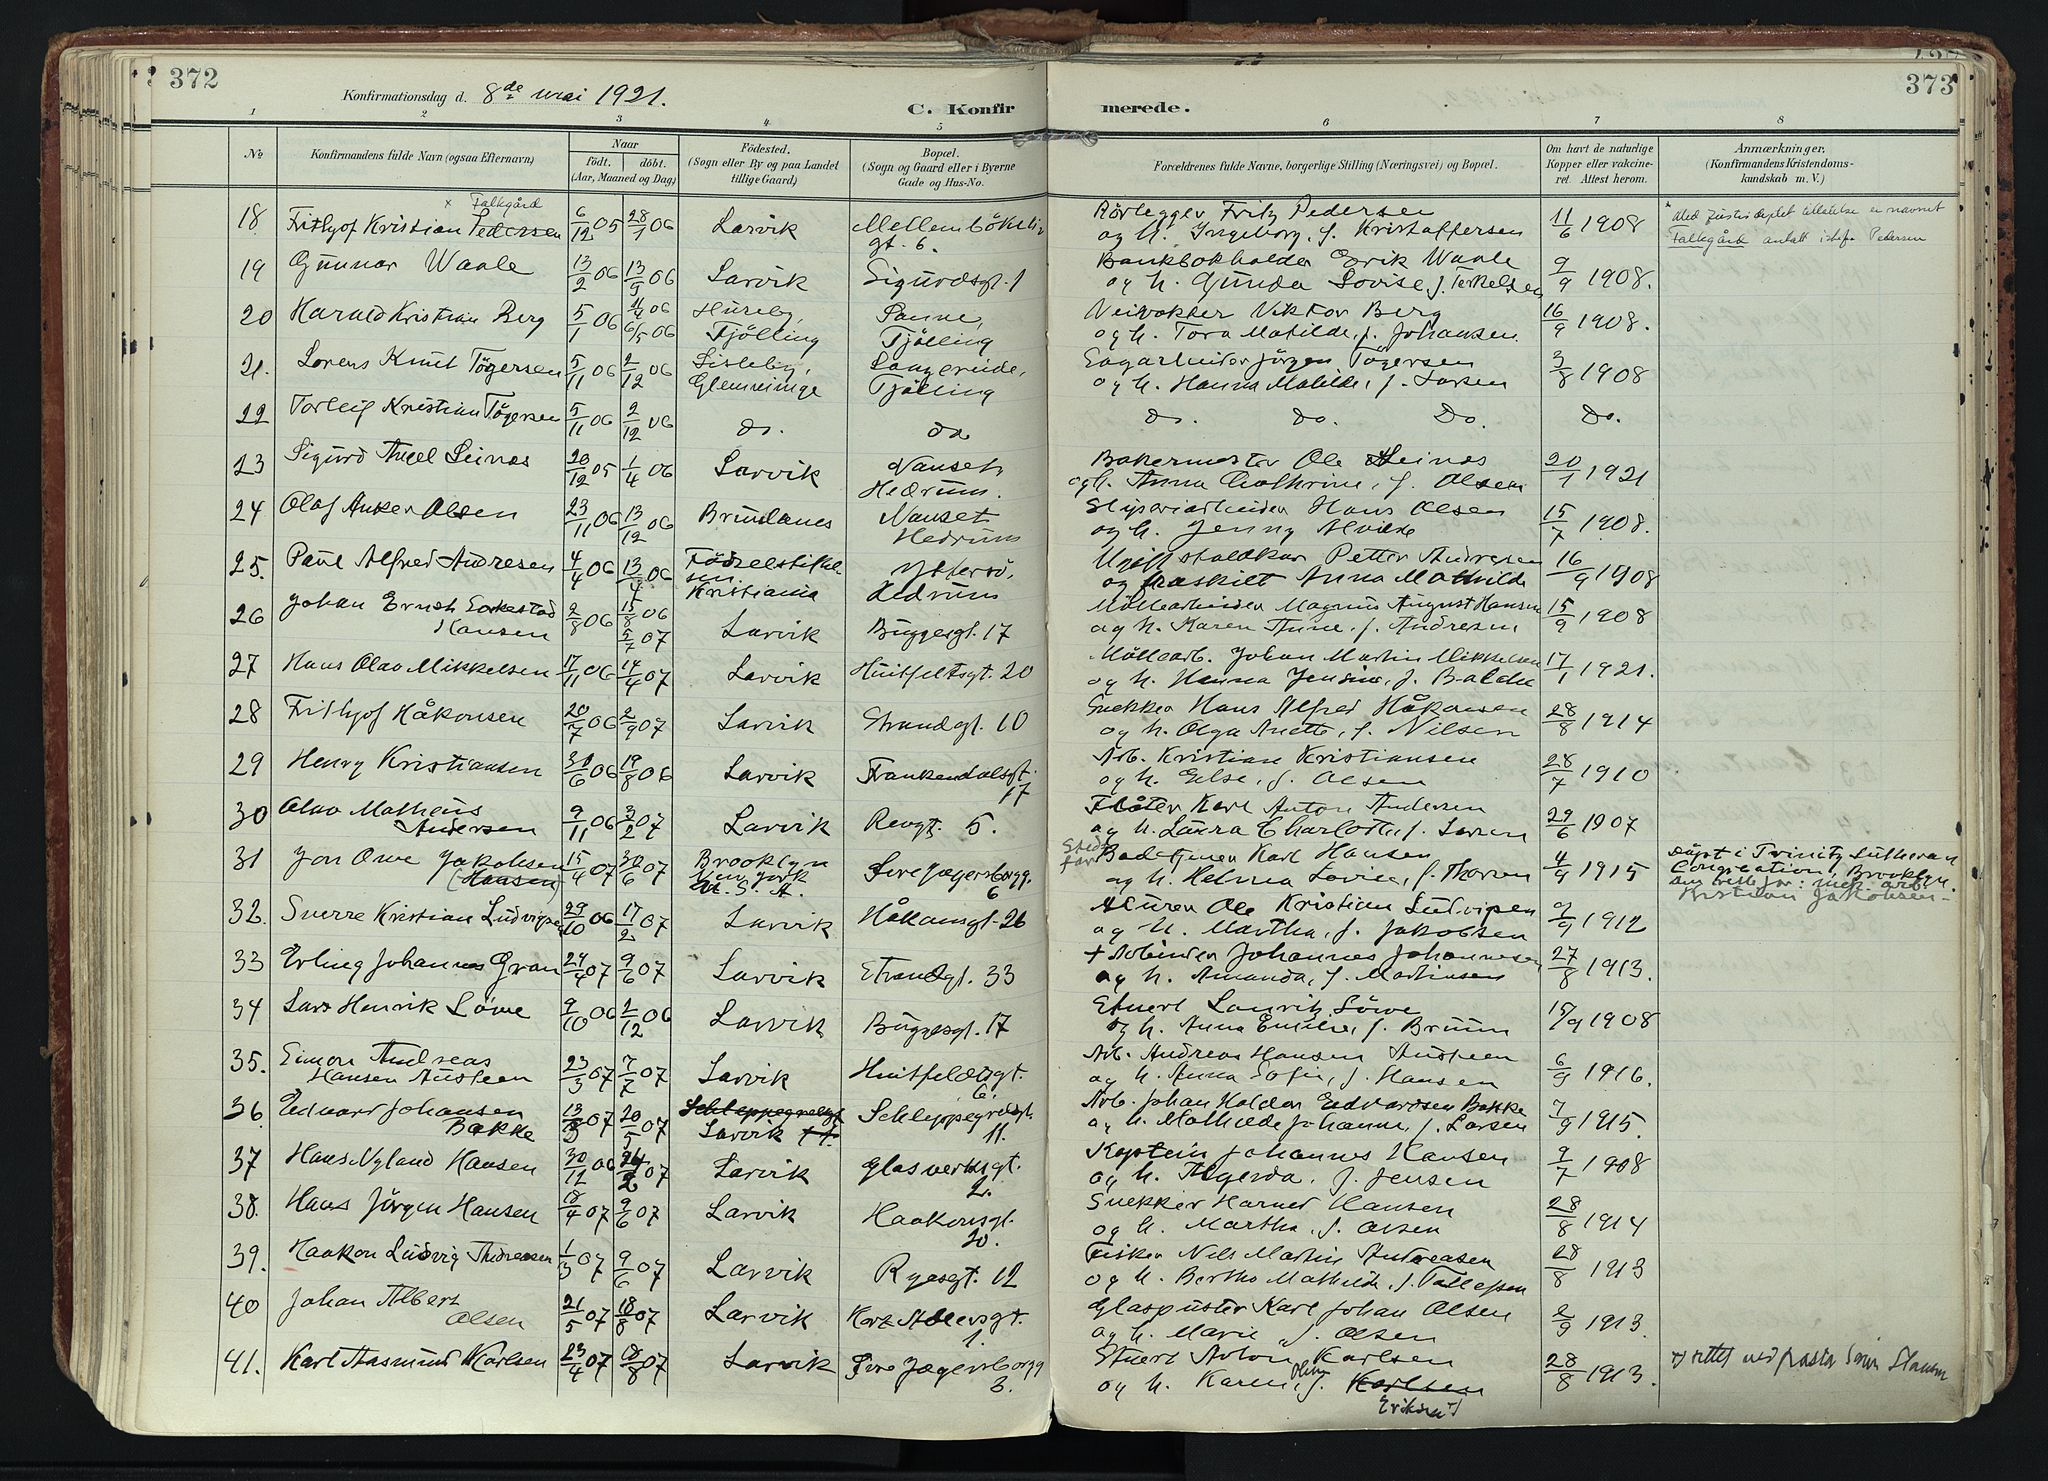 372
373
Konfirmationsdag d. 8de mai 1921.
C. Konfirmerede.
1 2 3 4 5 6 7 8
No
Konfirmandens fulde Navn (ogsaa Efternavn)
Naar
født. døbt.
(Aar, Maaned og Dag)
Fødested.
(Sogn eller By og paa Landet
tillige Gaard)
Bopæl.
(Sogn og Gaard eller i Byerne
Gade og Hus-No.
Forældrenes fulde Navne, borgerlige Stilling (Næringsvei) og Bopæl.
Om havt de naturlige
Kopper eller vakcine-
ret Attest herom.
Anmærkninger.
(Konfirmandens Kristendoms-
kundskab m. V.)
x Falkgård
18. Fritjof Kristian Pedersen 6/12 05 28/1 06 Larvik Mellembökeli gt. 6. Rörlegger Fritz Pedersen
og h. Ingeborg, f. Kristoffersen 11/6 1908
Falkgård antatt istf. Pedersen
19 Gunnar Waale 13/2 06 13/5 06 Larvik Sigurdsgt. 1 Bankbokholder Erik Waale
og h. Gunda Lovise, f. Terkelsen 9/9 1908.
20 Harald Kristian Berg 5/1 06 4/4 06 6/5 06 Huseby, Tjölling Tjölling Veivokter Viktor Berg
og h. Tora Matilde, f. Johansen. 16/9 1908.
21. Lorens Knut Tögersen 5/11 06 2/12 06 Lisleby, Glemminge Tjölling Sagarbeider Jörgen Tögersen
og h. Hanna Matilde, f. Larsen 3/8 1908
22 Torleif Kristian Tögersen 5/11 06 2/12 06 do. do. do. do. Do. Do. Do.
23 Sigurd Axel Seines 20/12 05 1/4 06 Larvik Nanset, Hedrum. Bakermester Ole Seines
og h. Anna Cathrine, f. Olsen 20/1 1921
24 Olaf Anker Olsen 23/11 06 13/12 06 Brunlanes Nanset Hedrum Sliperiarbeider Hans Olsen
og h. Jenny Alvilde 15/7 1908.
25. Paul Alfred Andresen 4/4 06 13/4 06 Födselstiftelsen Kristiania Yttersö, Hedrum Ugift staldkar Petter Andresen
og fraskilt Anna Mathilde 16/9 1908
26 Johan Ernst Hansen 2/8 06 15/8 06 5/7 07 Larvik Buggesgt. 17 Möllearbeider Magnus August Hansen
og h. Karen Anne, f. Andresen 15/9 1908
27 Hans Olav Mikkelsen 17/11 06 14/4 07 Larvik Huitfeltsgt. 20 Möllearb. Johan Martin Mikkelsen
og h. Hanna Jensine, f. Balche 17/1 1921.
28 Fritjof Håkonsen 20/7 06 2/9 07 Larvik Strandgt. 10 Snekker Hans Alfred Håkonsen
og h. Olga Anette, f. Nilsen 28/8 1914
29 Henry Kristiansen 30/6 06 19/8 06 Larvik Frankendalsgt. 17 Arb. Kristian Kristiansen
og h. Else, f. Olsen 28/7 1910
30 Olav Matheus Andersen 9/11 06 3/2 07 Larvik Revgt. 5. Flöter Karl Anton Andersen
og h. Laura Charlotte, f. Larsen 29/6 1907
31 Jon Owe Jakobsen (Hansen) 15/4 07 30/6 07 Brooklyn New York U. S. A. Fire Jægersborgg. 6 Stedfar Badetjener Karl Hansen
og h. Helma Lovise, f. Thorsen 4/9 1915 döpt i Trinity Lutheran
Congreation, Brooklyn.
Kristian Jakobsen
32. Sverre Kristian Ludvigsen 29/10 06 17/2 07 Larvik Håkonsgt. 26 Murer Ole Kristian Ludvigsen
og h. Martha, f. Jakobsen 9/9 1912
33 Erling Johannes Gran 24/4 07 9/6 07 Larvik Strandgt. 33 + Arbeider Johannes Johannesen
og h. Amanda, f. Martinsen 27/8 1913.
34 Lars Henrik Löwe 9/10 06 2/12 06 Larvik Buggesgt. 17 Stuert Lauritz Löwe
og h. Anna Emilie, f. Bruun 15/9 1908
35. Simon Andreas Hansen Austeen 23/3 07 7/7 07 Larvik Huitfeldtsgt. 6. Arb. Andreas Hansen Austeen
og h. Anna Sofie, f. Hansen 6/9 1916.
36. Edvard Johansen Bakke 20/5 07 Schleppegrellsgt Larvik Schleppegrellsgt. 11. Arb. Johan Haldor Edvardsen Bakke
og h. Mathilde Johanne, f. Larsen 7/9 1915.
37 Hans Nyland Hansen 30/12 06 07 Larvik Glasverksgt. 2. Kaptein Johannes Hansen
og h. Algerda, f. Jensen 9/7 1908
38. Hans Jörgen Hansen 18/4 07 9/6 07 Larvik Haakonsgt. 20. Snekker Harald Hansen
og h. Martha, f. Olsen 28/8 1914
39. Haakon Ludvig Andreasen 1/3 07 9/6 07 Larvik Ryesgt. 12 Fisker Nils Martin Andreasen
og h. Bertha Mathilde, f. Tollefsen 28/8 1913
40 Johan Albert Olsen 21/5 07 18/8 07 Larvik Korz Adelersgt. 1. Glaspuster Karl Johan Olsen
og h. Marie, f. Olsen 2/9 1913.
41. Karl Aasmund Karlsen 23/4 07 18/8 07 Larvik Fire Jægersborgg 3. Stuert Anton Karlsen
og h. Karen Oline, f. Karlsen Eriksen 28/8 1913.